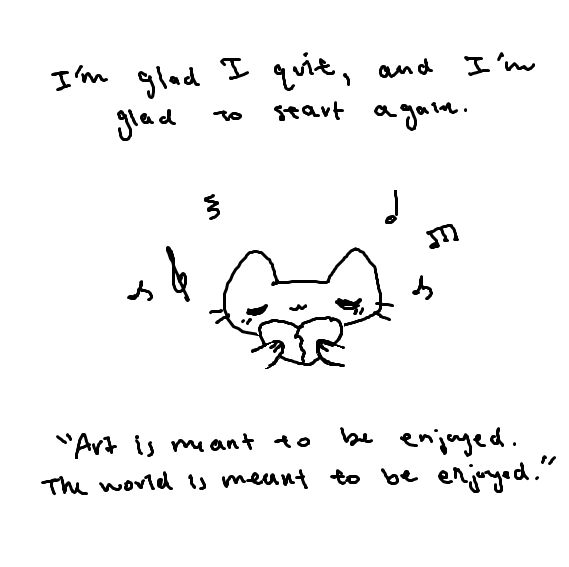 I'm glad I quit, and I'm
glad to start again.
"Art is meant to be enjoyed.
The world is meant to be enjoyed."